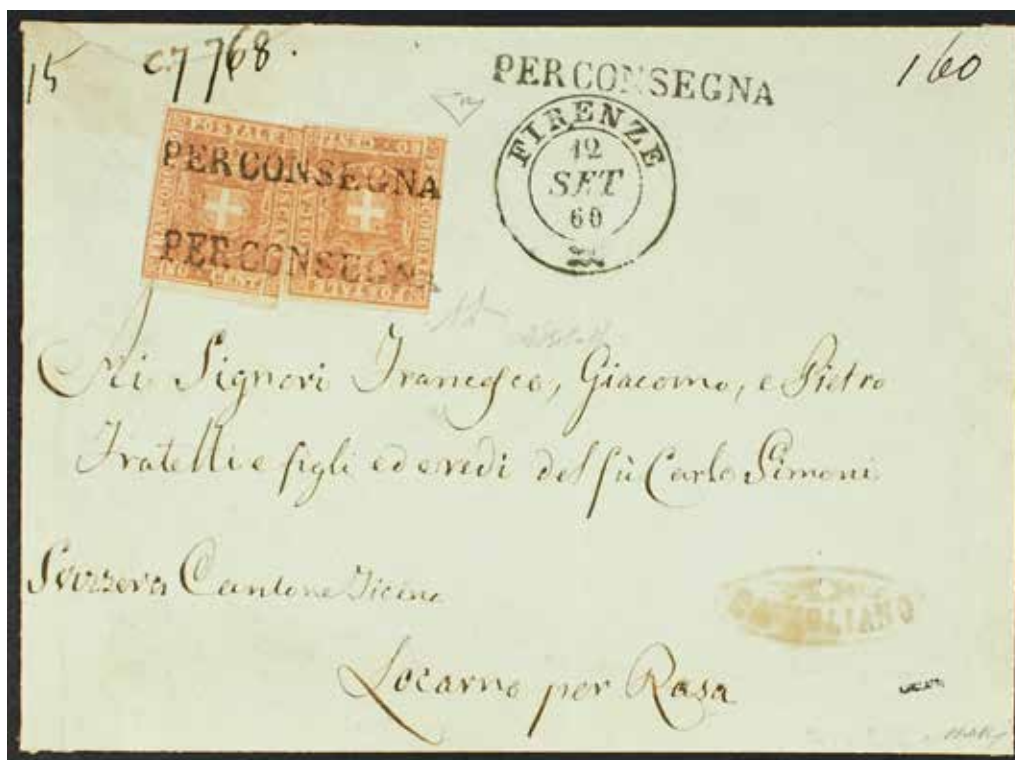 15 C.7 768. 160
PER CONSEGNA
FIRENZE
12
SET
60
PER CONSEGNA
PER CONSEGNA
Ai Signori Francesco, Giacomo, e Pietro
Fratelli e figli ed eredi del fù Carlo Simoni
Svizzera Cantone Ticino
Locarno per Rasa